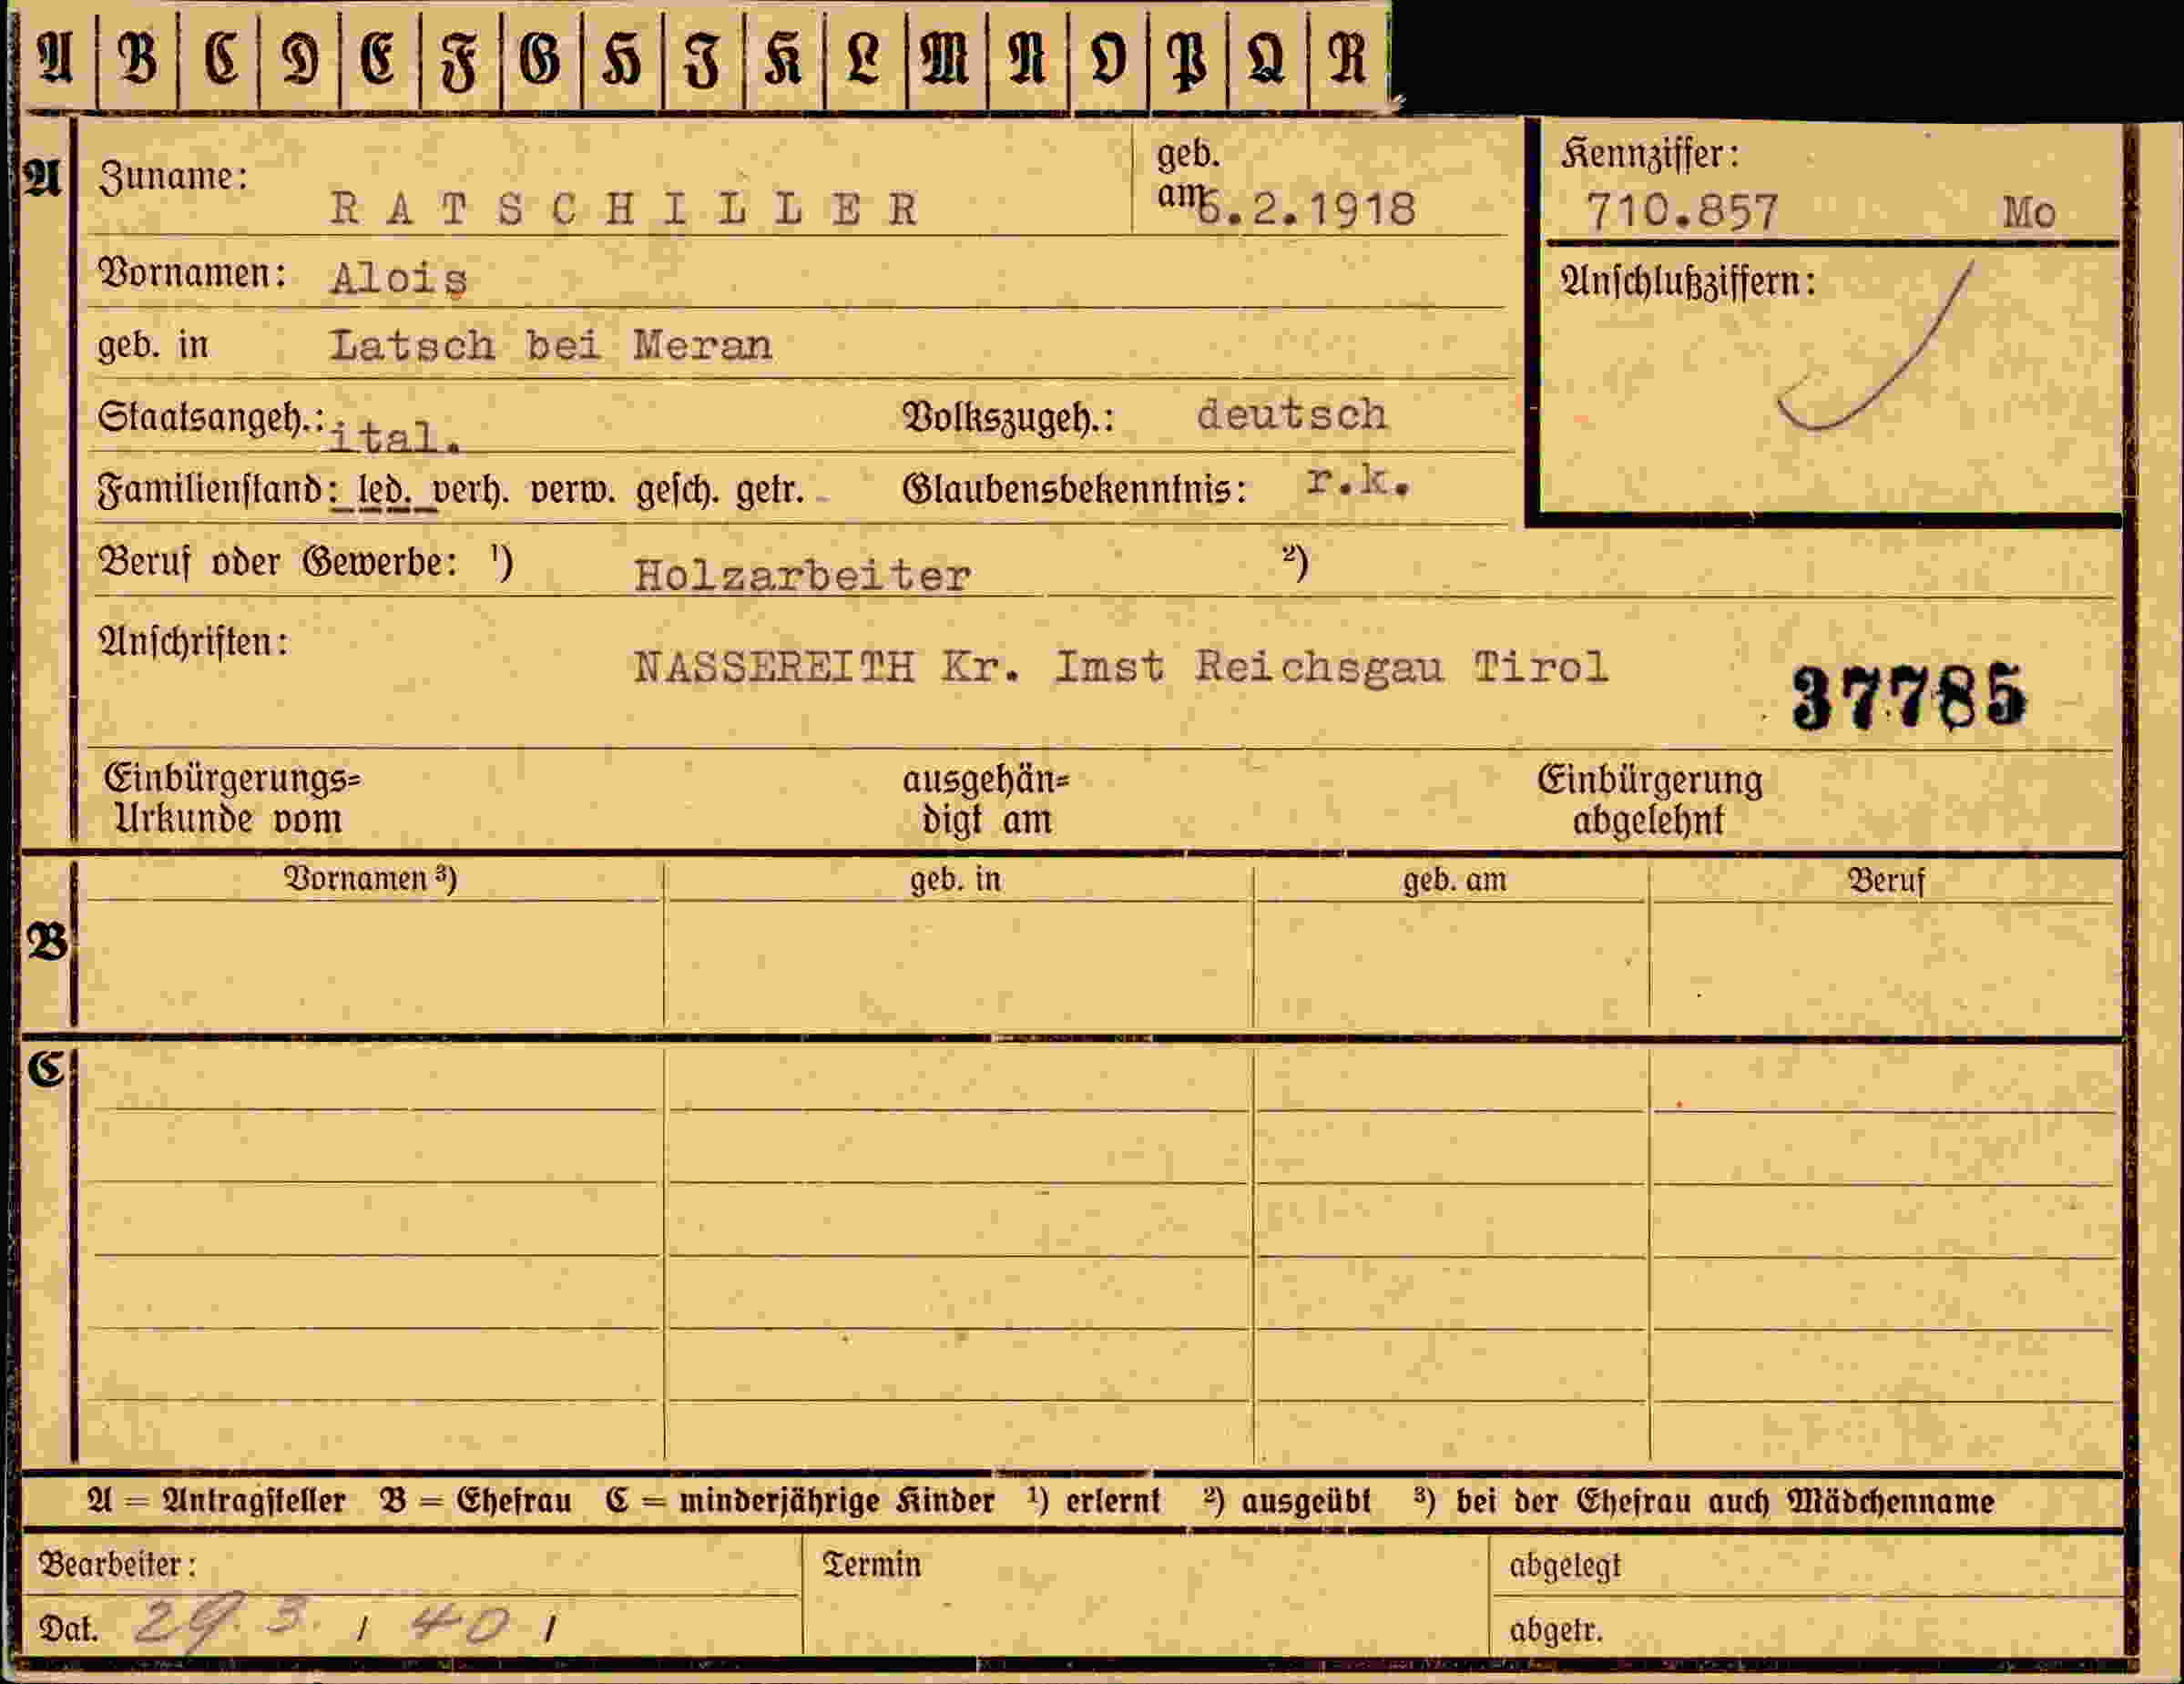 A B C D E F G H I K L M N O P Q R
A Zuname: RATSCHILLER geb. am 6.2.1918
Kennziffer: 710.857 Mo
Vornamen: Alois
Anschlußziffern:
geb. in Latsch bei Meran
Staatsangeh.: ital. Volkszugeh.: deutsch
Familienstand: led. verh. verw. gesch. getr. Glaubensbekenntnis: r.k.
Beruf oder Gewerbe: ¹) Holzarbeiter ²)
Anschriften: NASSEREITH Kr. Imst Reichsgau Tirol 37785
Einbürgerungs= ausgehän= Einbürgerung
Urkunde vom digt am abgelehnt
Vornamen ³) geb. in geb. am Beruf
B
C
A = Antragsteller B = Ehefrau C = minderjährige Kinder ¹) erlernt ²) ausgeübt ³) bei der Ehefrau auch Mädchenname
Bearbeiter: Termin abgelegt
Dat. 29. 3. / 40 / abgetr.